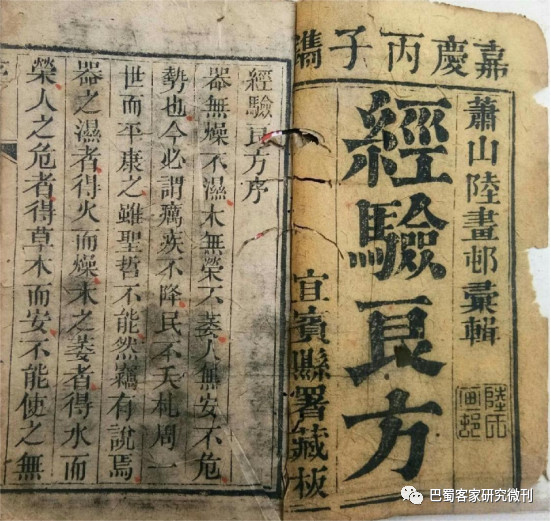 嘉慶丙子鐫
蕭山陸畫邨彙輯
經驗良方
宜賓縣署藏板
陸氏畫邨
經驗良方序
器無燥不濕木無榮不萎人無安不危
勢也今必謂癘疾不降民不夭札周一
世而平康之雖聖哲不能然竊有說焉
器之濕者得火而燥木之萎者得水而
榮人之危者得草木而安不能使之無
巴蜀客家研究微刊